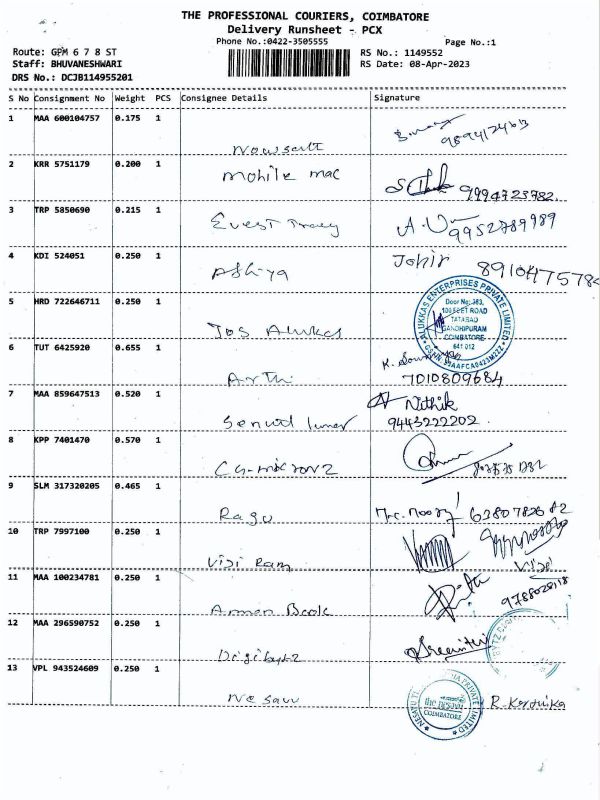 THE PROFESSIONAL COURIERS, COIMBATORE
Delivery Runsheet - PCX
Phone No.:0422-3505555
Page No.:1
Route: GPM 6 7 8 ST
RS No.: 1149552
Staff: BHUVANESHWARI
RS Date: 08-Apr-2023
DRS No.: DCJB114955201
S No Consignment No Weight PCS Consignee Details Signature
1 MAA 600104757 0.175 1
2 KRR 5751179 0.200 1
mohile mac
9994723782
3 TRP 5850690 0.215 1
9952789989
4 KDI 524051 0.250 1
Johir
Ashiya
5 HRD 722646711 0.250 1
LUKKAS ENTERPRISES PRIVATE LIMITED
Door No: 383,
100 FEET ROAD
TATABAD
GANDHIPURAM
COIMBATORE
641 012
Jos Alukas
6 TUT 6425920 0.655 1
Arthi
7010809684
7 MAA 859647513 0.520 1
Nithik
9443222202
8 KPP 7401470 0.570 1
9 SLM 317320205 0.465 1
Ragu
10 TRP 7997100 0.250 1
Viji Ram
11 MAA 100234781 0.250 1
9788028118
12 MAA 296590752 0.250 1
Digibytz
13 VPL 943524609 0.250 1
Nesavu
the nesavu
COIMBATORE
PRIVATE LIMITED